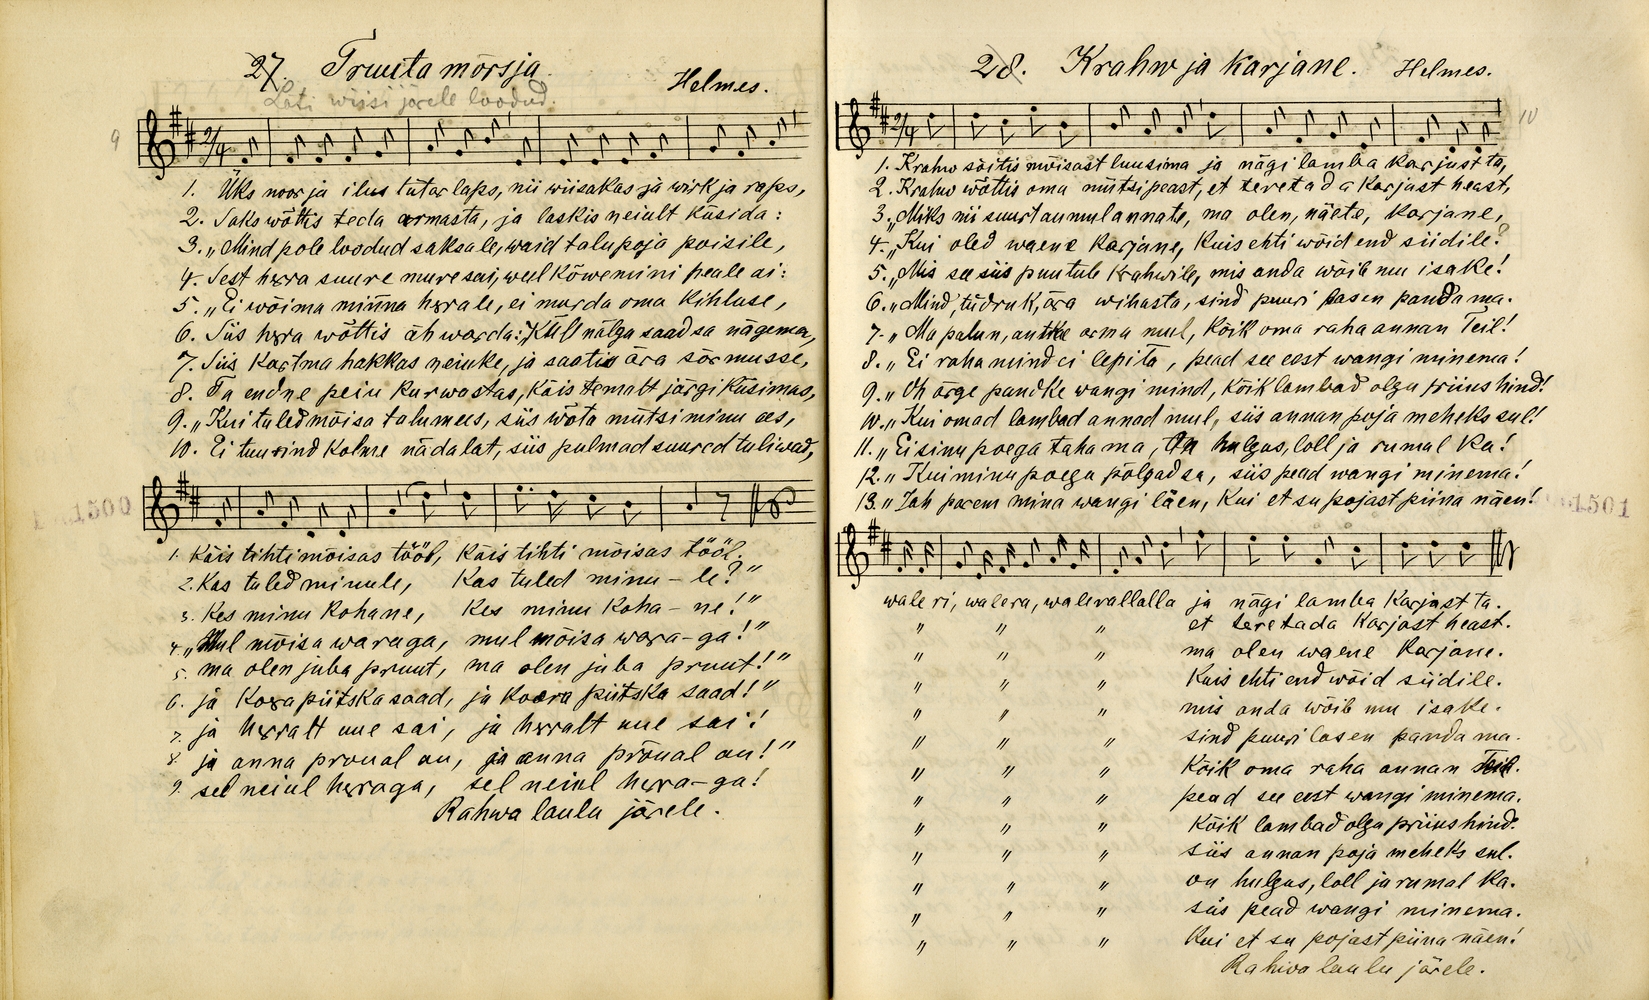 27. Truuta mõrsja.
Läti wiisi järele loodud.
Helmes.
9
2/4
1. Üks noor ja ilus tütarlaps, nii wiisakas ja wirk ja raps,
2. Saks wõttis teda armasta, ja laskis neiult küsida:
3. „Mind pole loodud saksale, waid talupoja poisile,
4. Sest herra suure mure sai, weel kõwemini peale ai:
5. „Ei wõi ma minna herrale, ei murda oma kihluse,
6. Siis herra wõttis ähwarda: „Küll nälga saad sa nägema,
7. Siis kartma hakkas neiuke, ja saatis ära sõrmusse,
8. Ta endne peiu kurwastas, käis temalt järgi küsimas,
9. „Kui tuled mõisa talumees, siis wõta mütsi minu ees,
10. Ei tuusind kolme nädalat, siis pulmad suured tuliwad,
1500
1. käis tihti mõisas tööl, käis tihti mõisas tööl.
2. Kas tuled minule, kas tuled minu-le?"
3. kes minu kohane, kes minu koha-ne!"
4. „Mul mõisa waraga, mul mõisa wara-ga!"
5. ma olen juba pruut, ma olen juba pruut!"
6. ja kora piitska saad, ja koera piitska saad!"
7. ja herralt uue sai, ja herralt uue sai!
8. ja anna prõual au, ja anna prõual au!"
9. sel neiul herraga, sel neiul herra-ga!
Rahwa laulu järele.
28. Krahw ja karjane. Helmes.
10
2/4
1. Krahw sõitis mõisast luusima ja nägi lamba karjust ta,
2. Krahw wõttis oma mütsi peast, et teretada karjast heast,
3. „Miks nii suurt au mul annate, ma olen, näete, karjane,
4. „Kui oled waene karjane, kuis ehti wõid end siidile?
5. „Mis see siis puutub krahwile, mis anda wõib mu isake!
6. „Mind, tüdruk, ära wihasta, sind puuri lasen panda ma.
7. „Ma palun, antke arma mul, kõik oma raha annan Teil!
8. „Ei raha mind ei lepita, pead see eest wangi minema!
9. „Oh ärge pandke wangi mind, kõik lambad olgu priiushind!
10. „Kui omad lambad annad mul, siis annan poja meheks sul!
11. „Ei sinu poega taha ma, On hulgus, loll ja rumal ka!
12. „Kui minu poega põlgad sa, siis pead wangi minema!
13. „Jah parem mina wangi läen, kui et su pojast piina näen!
1501
waleri, walera, walerallalla ja nägi lamba karjust ta.
" " " et teretada karjast heast.
" " " ma olen waene karjane.
" " " kuis ehti end wõid siidile.
" " " mis anda wõib mu isake.
" " " sind puuri lasen panda ma.
" " " kõik oma raha annan Teil.
" " " pead see eest wangi minema.
" " " kõik lambad olgu priiushind.
" " " siis annan poja meheks sul.
" " " on hulgus, loll ja rumal ka.
" " " siis pead wangi minema.
" " " kui et su pojast piina näen!
Rahwa laulu järele.